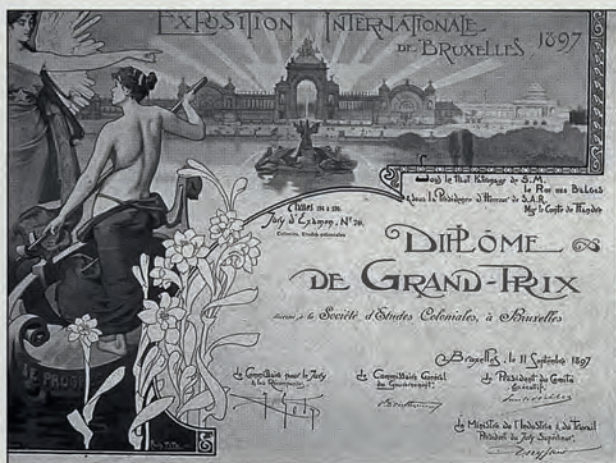 EXPOSITION INTERNATIONALE
DE BRUXELLES 1897
Sous le Haut Patronage de S.M.
le Roi des BELGES
& sous la Présidence d'Honneur de S.A.R.
Mgr le Comte de Flandre
Classes
Jury d'Examen, Nº
Colonies, Etudes coloniales
DIPLÔME
DE GRAND-PRIX
décerné à la Société d'Etudes Coloniales, à Bruxelles
Bruxelles, le 11 Septembre 1897
Le Commissaire pour le Jury
& les Récompenses
Le Commissaire Général
du Gouvernement
Le Président du Comité
Exécutif
Le Ministre de l'Industrie & du Travail
Président du Jury Supérieur
LE PROG